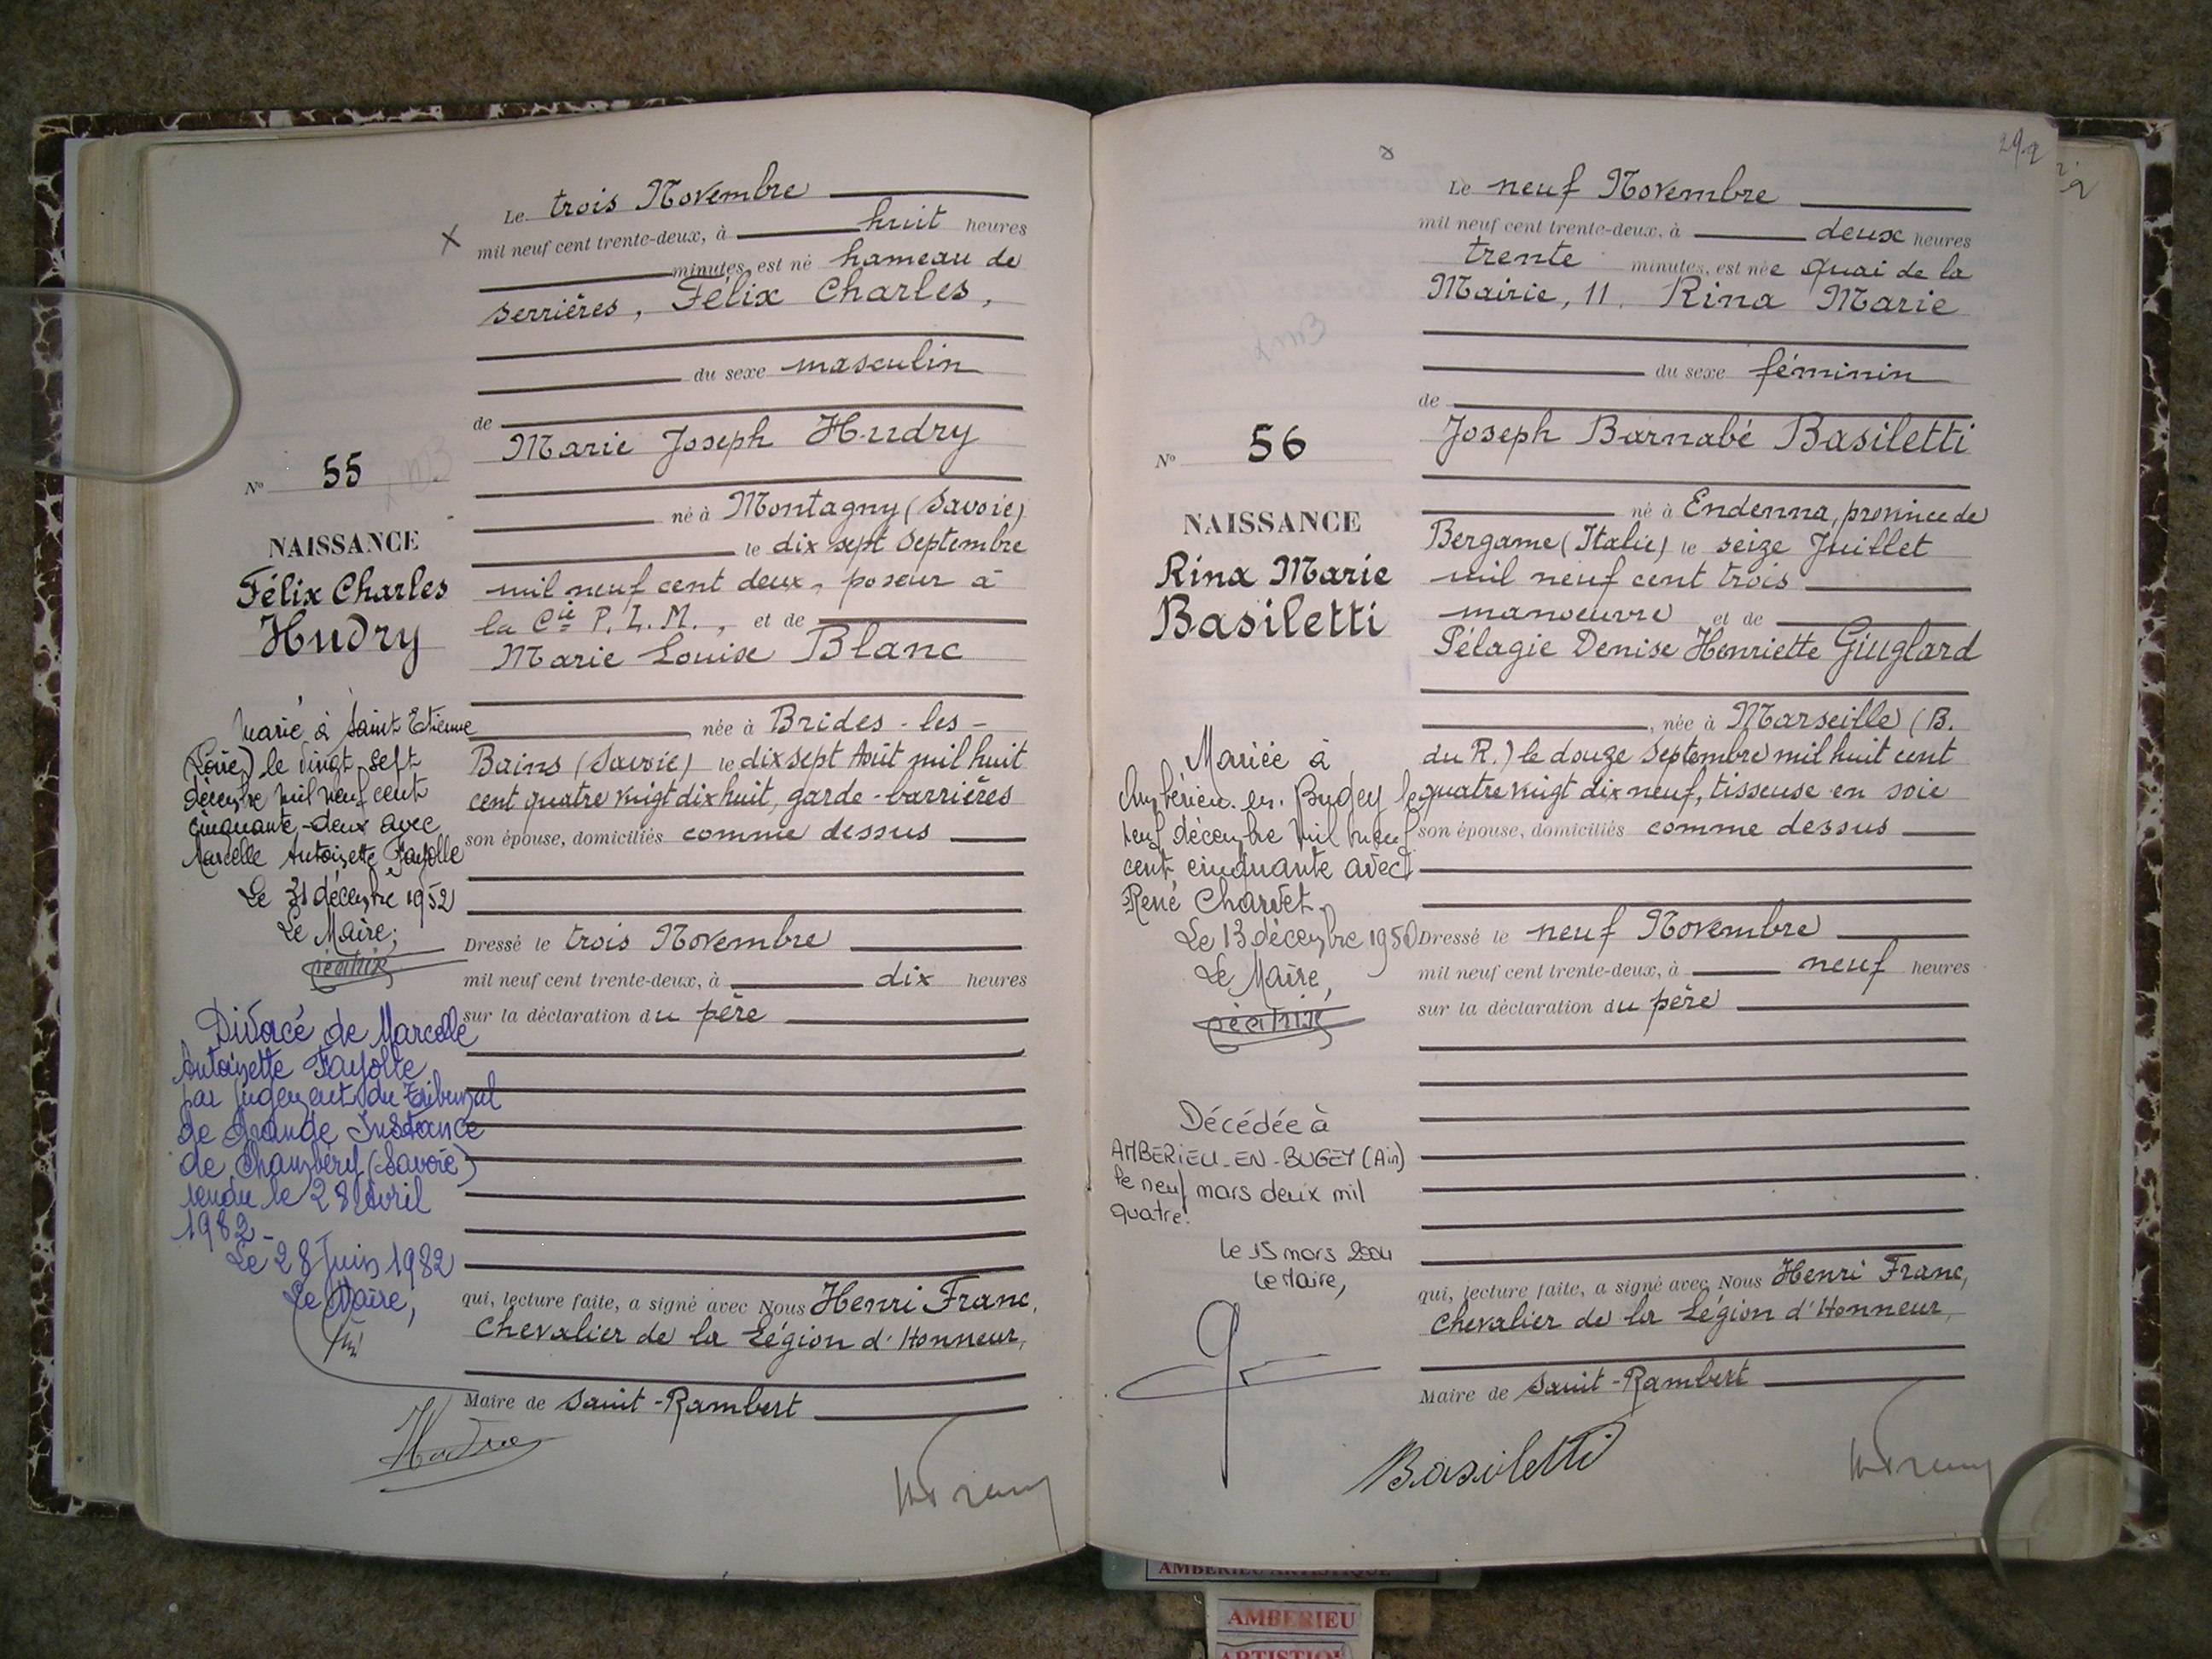 Le trois Novembre
mil neuf cent trente-deux, à huit heures
minutes, est né hameau de
Serrières, Félix Charles,
du sexe masculin
de
Marie Joseph Hudry
né à Montagny (Savoie)
le dix sept Septembre
mil neuf cent deux, poseur à
la Cie P. L. M., et de
Marie Louise Blanc
née à Brides-les-
Bains (Savoie) le dix sept Août mil huit
cent quatre vingt dix huit, garde-barrières
son épouse, domiciliés comme dessus
Dressé le trois Novembre
mil neuf cent trente-deux, à dix heures
sur la déclaration du père
qui, lecture faite, a signé avec Nous Henri Franc,
Chevalier de la Légion d'Honneur,
Maire de Saint-Rambert
Nº 55
NAISSANCE
Félix Charles
Hudry
Marié à Saint Etienne
(Loire) le vingt sept
décembre mil neuf cent
cinquante-deux avec
Marcelle Antoinette Fayolle
Le 31 décembre 1952
Le Maire,
Divorcé de Marcelle
Antoinette Fayolle
par jugement du Tribunal
de Grande Instance
de Chambéry (Savoie)
rendu le 28 Avril
1982-
Le 28 Juin 1982
Le Maire,
292
Le neuf Novembre
mil neuf cent trente-deux, à deux heures
trente minutes, est née Quai de la
Mairie, 11. Rina Marie
du sexe féminin
de
Joseph Barnabé Basiletti
né à Endenna, province de
Bergame (Italie) le seize Juillet
mil neuf cent trois
manoeuvre et de
Pélagie Denise Henriette Giuglard
, née à Marseille (B.
du R.) le douze Septembre mil huit cent
quatre vingt dix neuf, tisseuse en soie
son épouse, domiciliés comme dessus
Dressé le neuf Novembre
mil neuf cent trente-deux, à neuf heures
sur la déclaration du père
qui, lecture faite, a signé avec Nous Henri Franc,
Chevalier de la Légion d'Honneur,
Maire de Saint-Rambert
Basiletti
Nº 56
NAISSANCE
Rina Marie
Basiletti
Mariée à
Ambérieu-en-Bugey le
neuf décembre mil neuf
cent cinquante avec
René Charvet.
Le 13 décembre 1950
Le Maire,
Décédée à
AMBERIEU-EN-BUGEY (Ain)
le neuf mars deux mil
quatre.
le 15 mars 2004
Le Maire,
AMBERIEU ARTISTIQUE
AMBERIEU
ARTISTIQUE